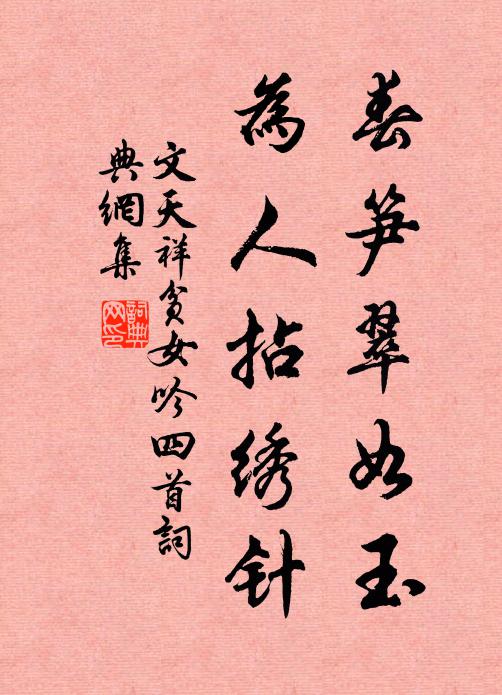 春笋翠如玉
為人拈绣针
文天祥贫女吟四首詞
典網集
詞典
网印